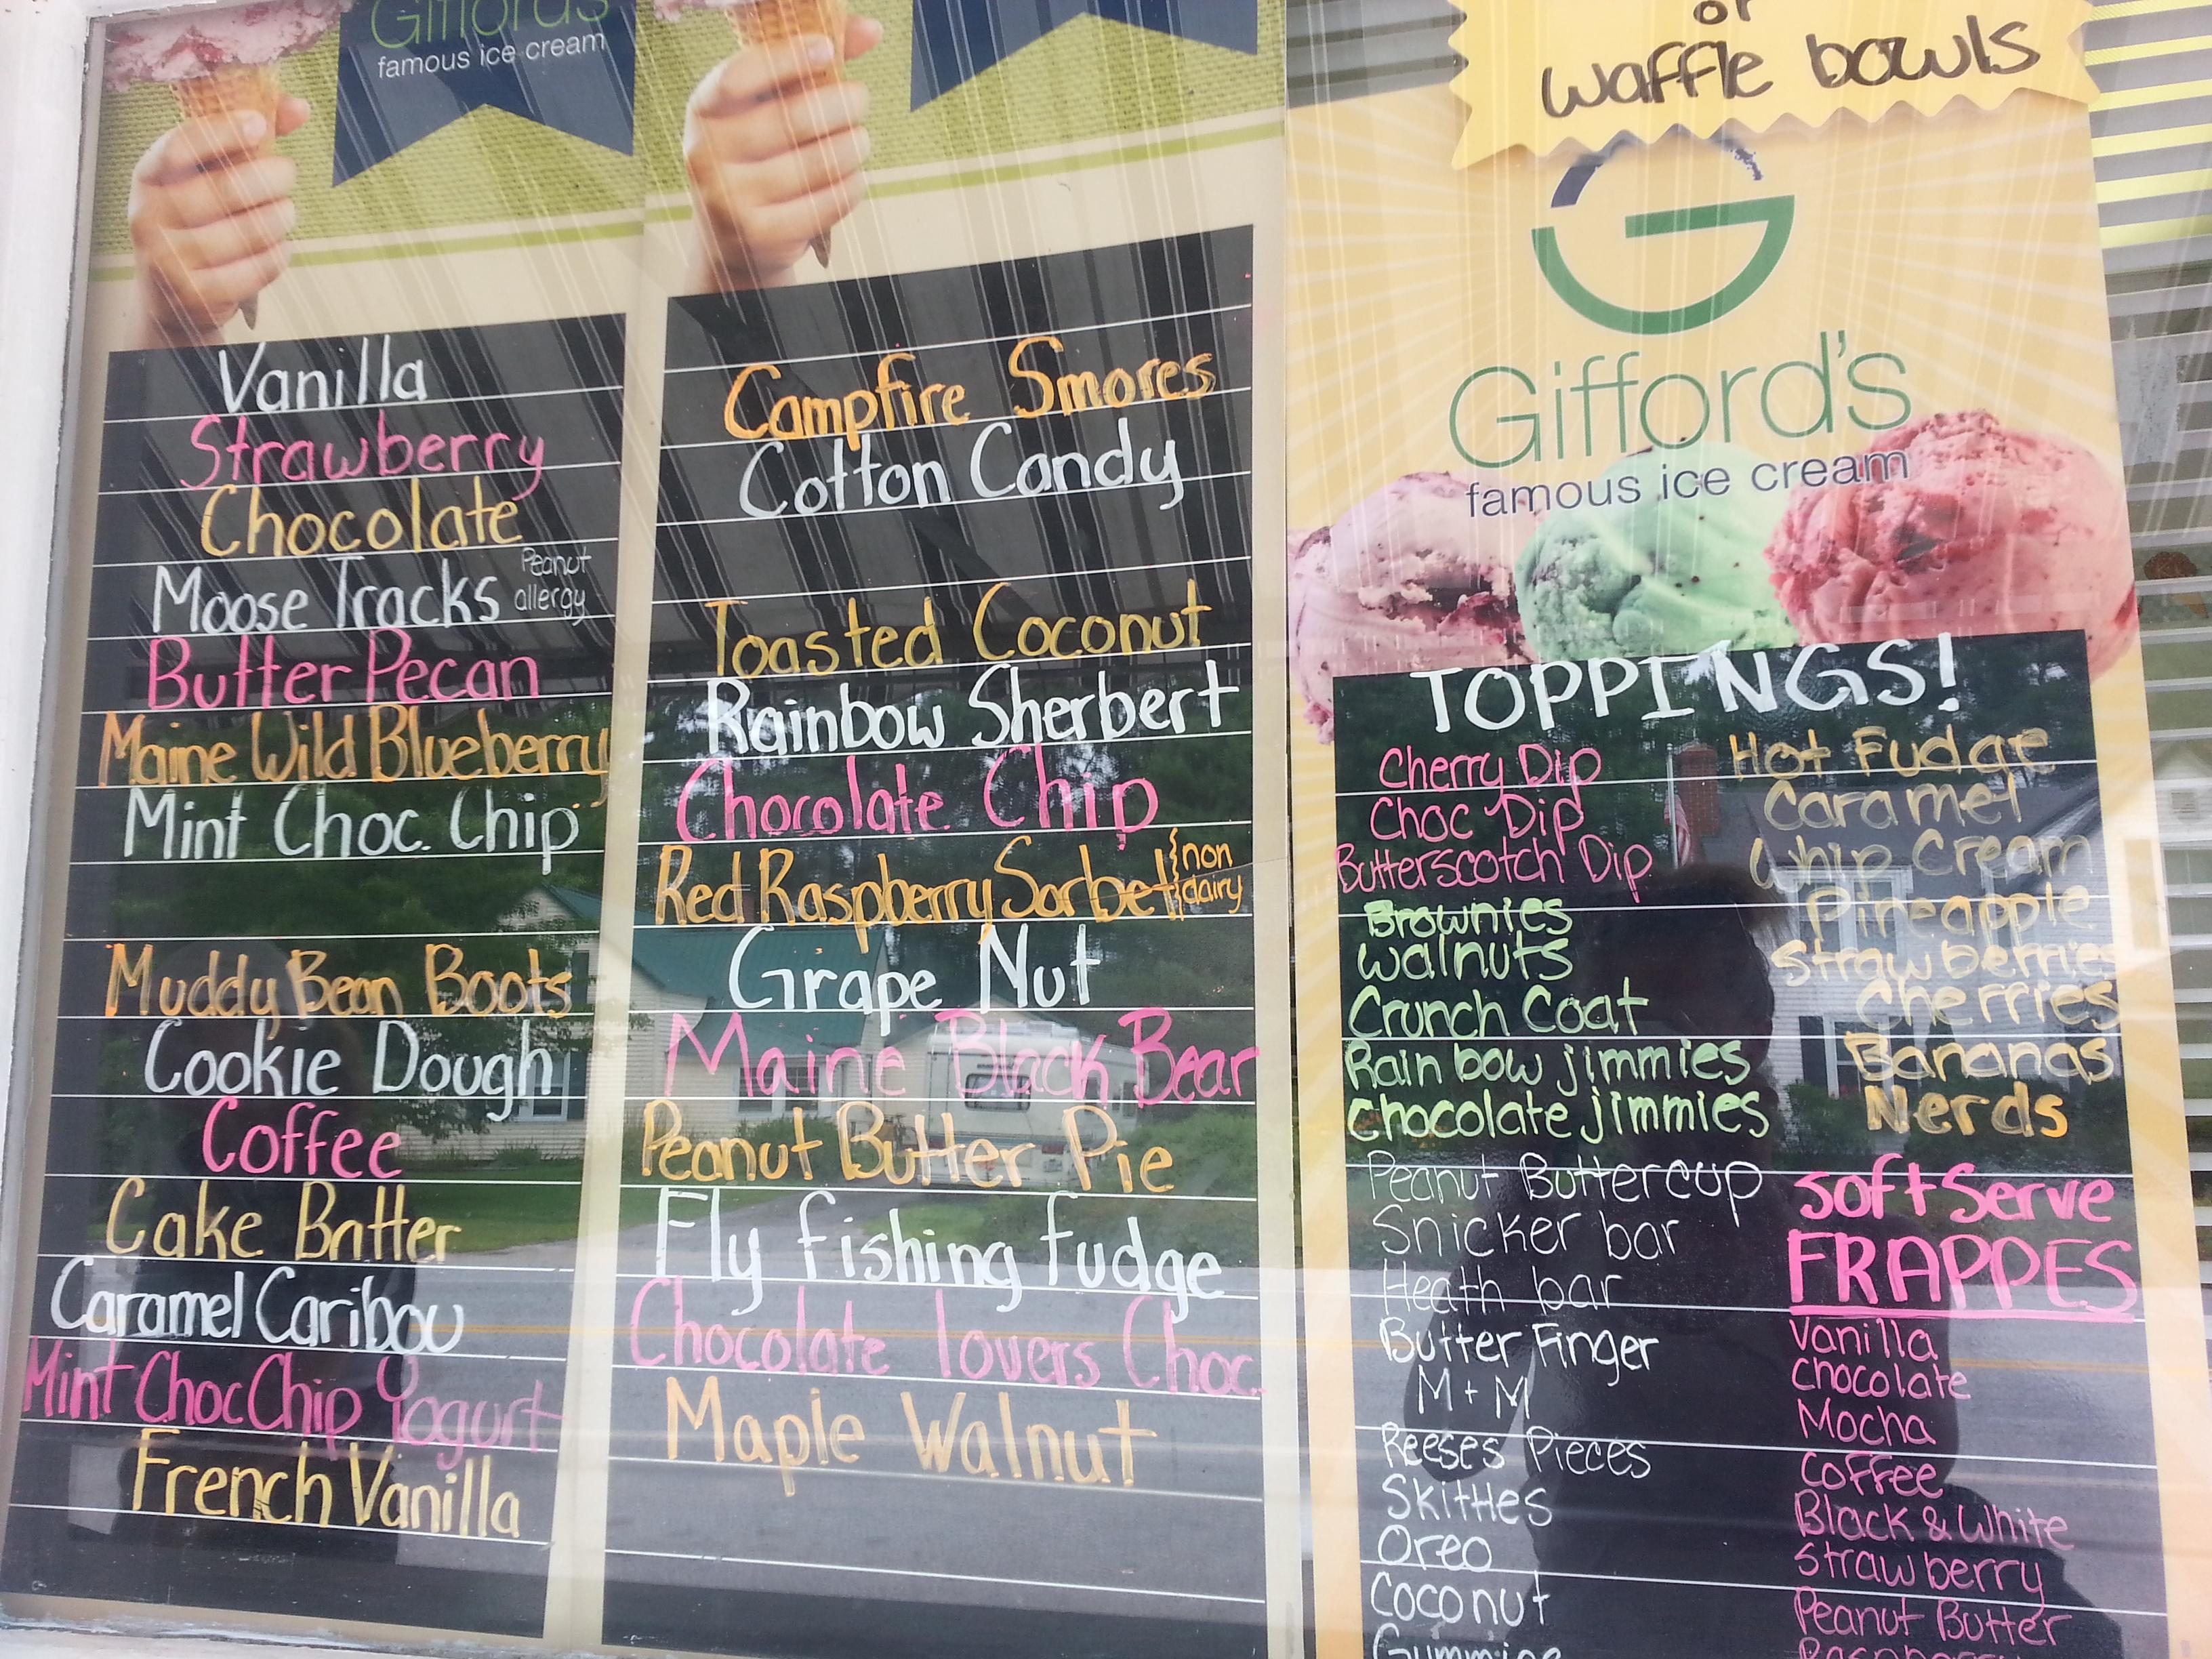 Gifford's
famous ice cream
Vanilla
Strawberry
Chocolate
Moose Tracks Peanut allergy
Butter Pecan
Maine Wild Blueberry
Mint Choc. Chip
Muddy Bean Boots
Cookie Dough
Coffee
Cake Batter
Caramel Caribou
Mint Choc Chip Yogurt
French Vanilla
Campfire Smores
Cotton Candy
Toasted Coconut
Rainbow Sherbert
Chocolate Chip
Red Raspberry Sorbet {non dairy
Grape Nut
Maine Black Bear
Peanut Butter Pie
Fly fishing fudge
Chocolate lovers Choc.
Maple Walnut
or
waffle bowls
G
Gifford's
famous ice cream
TOPPINGS!
Cherry Dip
Choc Dip
Butterscotch Dip
Brownies
Walnuts
Crunch Coat
Rainbow jimmies
Chocolate jimmies
Peanut Buttercup
Snicker bar
Heath bar
Butter Finger
M + M
Reeses Pieces
Skittles
Oreo
Coconut
Hot Fudge
Caramel
Whip Cream
Pineapple
Strawberries
Cherries
Bananas
Nerds
Soft Serve
FRAPPES
Vanilla
Chocolate
Mocha
Coffee
Black & White
Strawberry
Peanut Butter